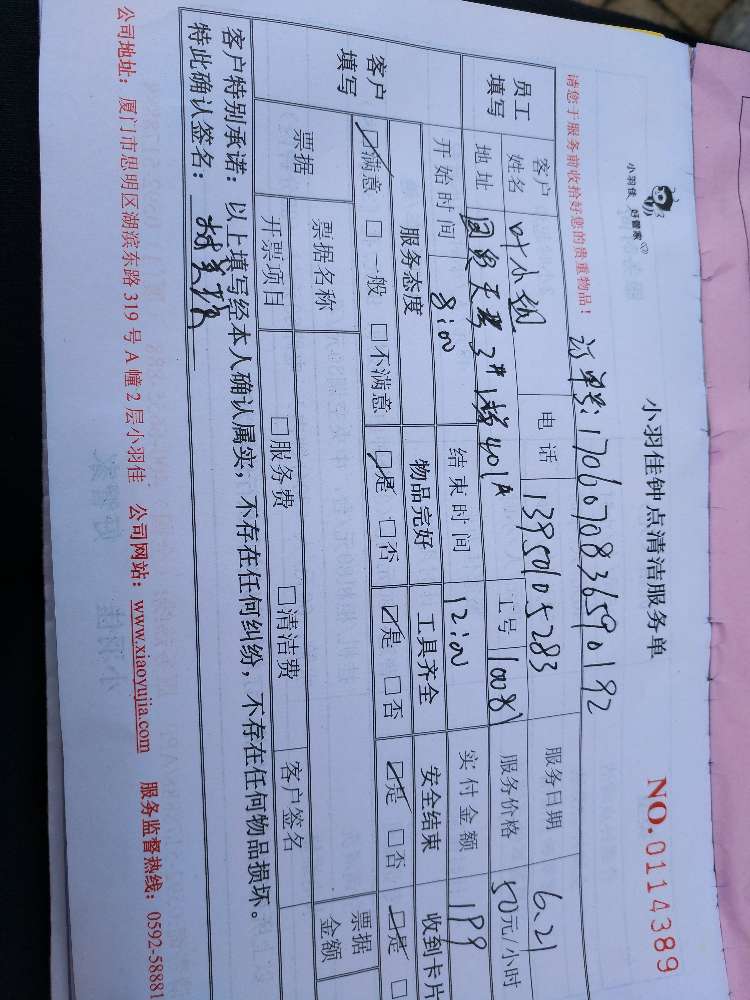 小羽佳 好管家
小羽佳钟点清洁服务单
NO.0114389
请您于服务前收拾好您的贵重物品！
订单号：1706070836590192
员工填写 客户姓名 叶小姐 电话 13950105283 服务日期 6.21
地址 2# 401 工号 10081 服务价格 50元/小时
开始时间 8:00 结束时间 12:00 实付金额 199
客户填写 服务态度 物品完好 工具齐全 安全结束 收到卡片
☑满意 □一般 □不满意 ☑是 □否 ☑是 □否 ☑是 □否 ☑是 □
票据 票据名称 票据金额
开票项目 □服务费 □清洁费 客户签名
客户特别承诺：以上填写经本人确认属实，不存在任何纠纷，不存在任何物品损坏。
特此确认签名：
公司地址：厦门市思明区湖滨东路 319 号 A 幢 2 层小羽佳 公司网站：www.xiaoyujia.com 服务监督热线：0592-58881